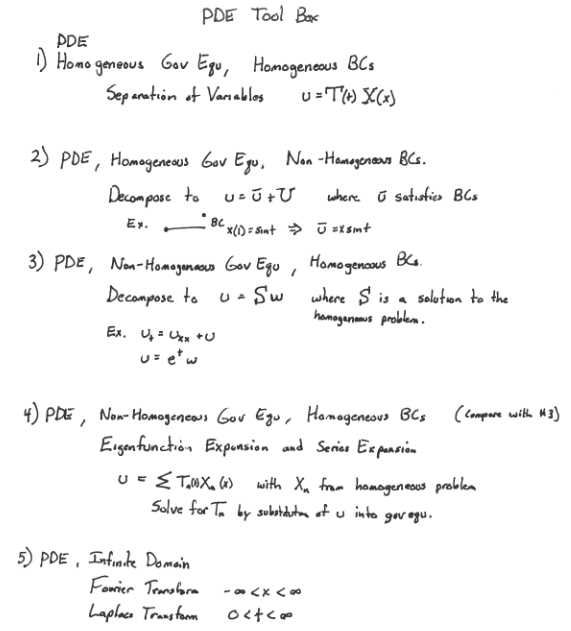 PDE Tool Box
PDE
1) Homogeneous Gov Equ, Homogeneous BCs
Separation of Variables u = T(t) X(x)
2) PDE, Homogeneous Gov Equ, Non-Homogeneous BCs.
Decompose to u = ū + U where ū satisfies BCs
Ex. BC x(1) = sint ⇒ ū = x sint
3) PDE, Non-Homogeneous Gov Equ, Homogeneous BCs.
Decompose to u = Sw where S is a solution to the
homogeneous problem.
Ex. u_t = u_xx + u
u = e^t w
4) PDE, Non-Homogeneous Gov Equ, Homogeneous BCs (Compare with #3)
Eigenfunction Expansion and Series Expansion
u = Σ T_n(t) X_n(x) with X_n from homogeneous problem
Solve for T_n by substitution of u into gov equ.
5) PDE, Infinite Domain
Fourier Transform -∞ < x < ∞
Laplace Transform 0 < t < ∞